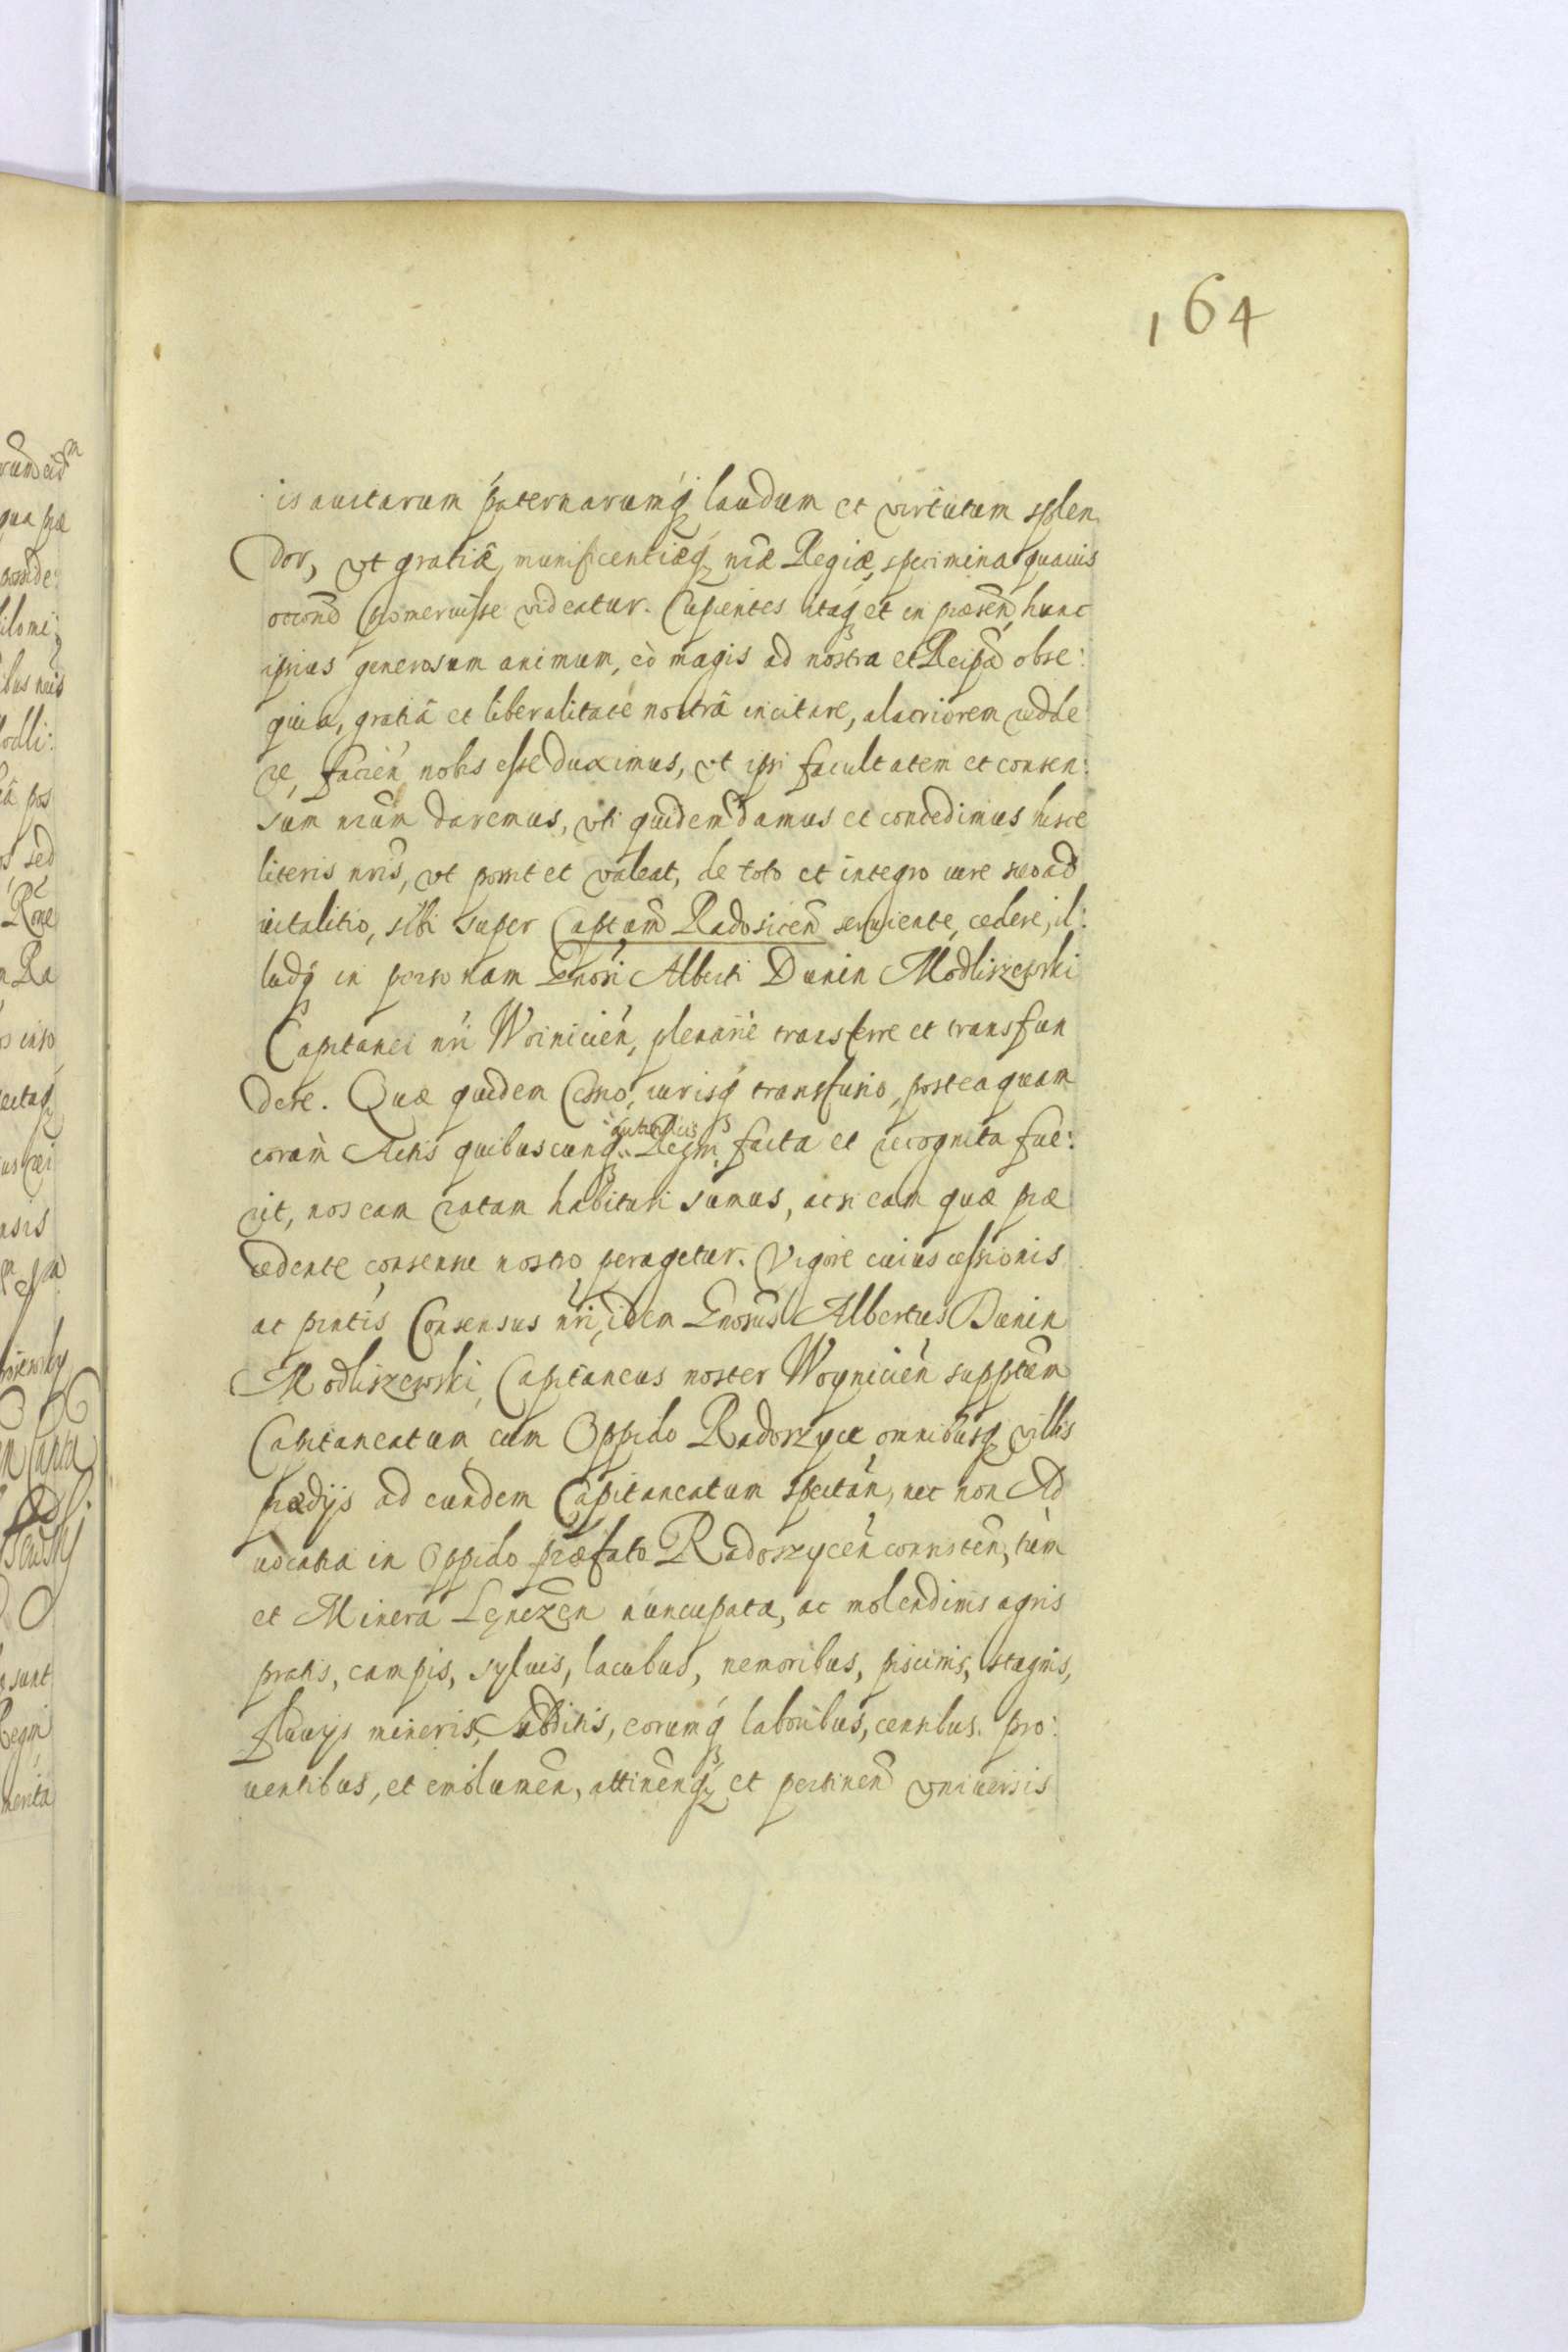 164
is auitarum paternarumq́ laudum et virtutum splen
dor, vt gratiæ munificentiæq́ nræ Regiæ, specimina quauis
occoné promeruisse videatur. Cupientes itaq́ et in præsen̄ hunc
ipsius generosum animum, eò magis ad nostra et Reipcæ obse:
quia, gratiâ et liberalitate nostrâ incitare, alacriorem redde
re, facień nobis esse duximus, vt ipsi facultatem et consen:
sum nrum daremus, vti quidem damus et concedimus hisce
literis nris, vt possit et valeat, de toto et integro iure suo ad
uitalitio, sibi super Captum Radosicen̄ seruiente, cedere, il:
ludq́ in personam Gnosi Alberti Dunin Modliszewski
Capitanei nri Woinicień, plenariè transferre et transfun
dere. Quæ quidem Cessio, iurisq́ transfusio, posteaquam
coram Actis quibuscunq́ autenticis Regni facta et recognita fue:
rit, nos eam ratam habituri sumus, acsi eam quæ præ
cedente consensu nostro peragetur. Vigore cuius cessionis
ac pntis Consensus nri, idem Gnosus Albertus Dunin
Modliszewski, Capitaneus noster Woynicień supptum
Capitaneatum cum Oppido Radoszyce omnibusq́ villis
prædijs ad eundem Capitaneatum spectan̄, nec non Ad
uocatia in Oppido præfato Radoszycen̄ consisten̄, tùm
et Minera nuncupata, ac molendinis agris
pratis, campis, syluis, lacubus, nemoribus, piscinis, stagnis,
fluuijs mineris, Subditis, eorumq́ laboribus, censibus. pro:
uentibus, et emolumen̄, attinenq́ et pertinen̄ vniuersis